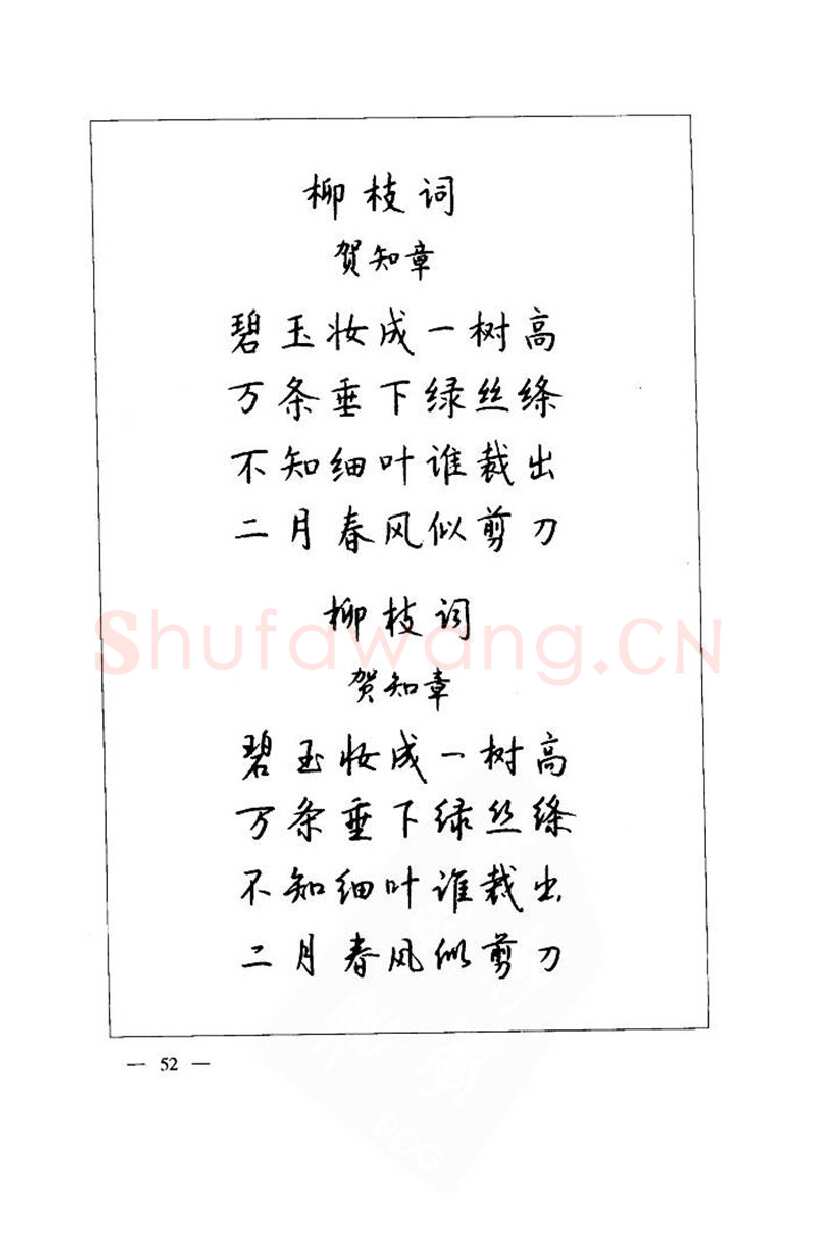 柳枝词
贺知章
碧玉妆成一树高
万条垂下绿丝绦
不知细叶谁裁出
二月春风似剪刀
柳枝词
贺知章
碧玉妆成一树高
万条垂下绿丝绦
不知细叶谁裁出
二月春风似剪刀
Shufawang.CN
— 52 —